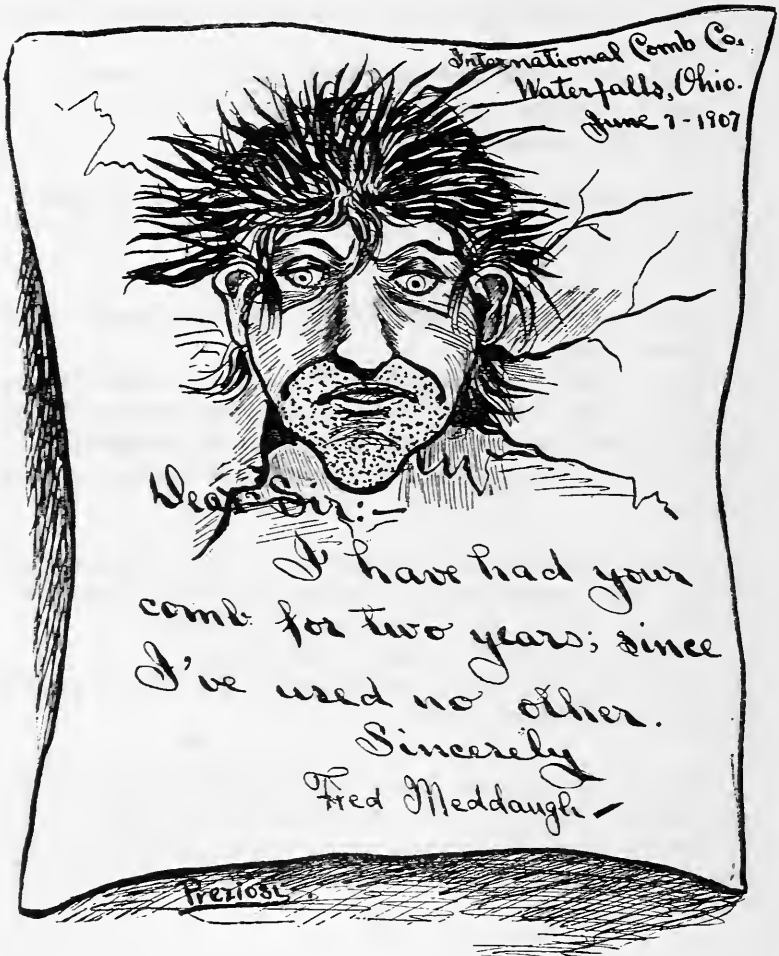 International Comb Co.
Waterfalls, Ohio.
June 7-1907
Dear Sir:-
I have had your
comb for two years; since
I've used no other.
Sincerely
Fred Meddaugh-
Preziosi.